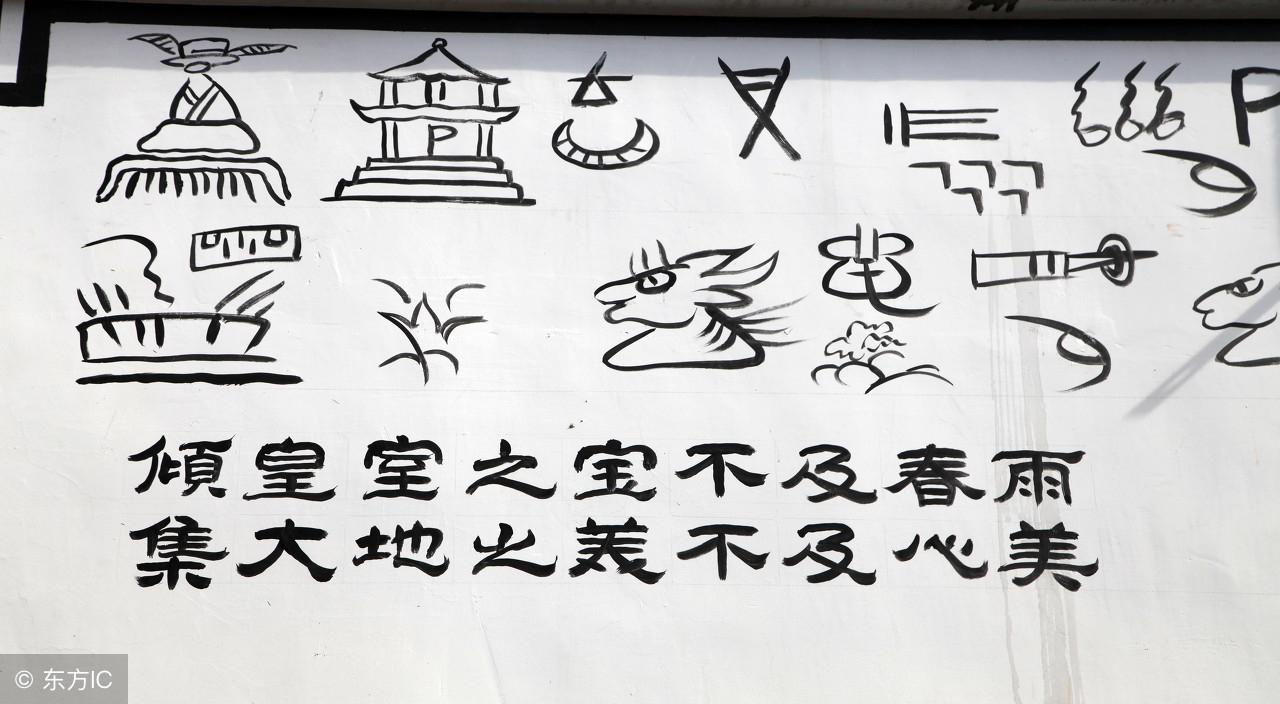 P
P
傾皇室之宝不及春雨
集大地之美不及心美
© 东方IC